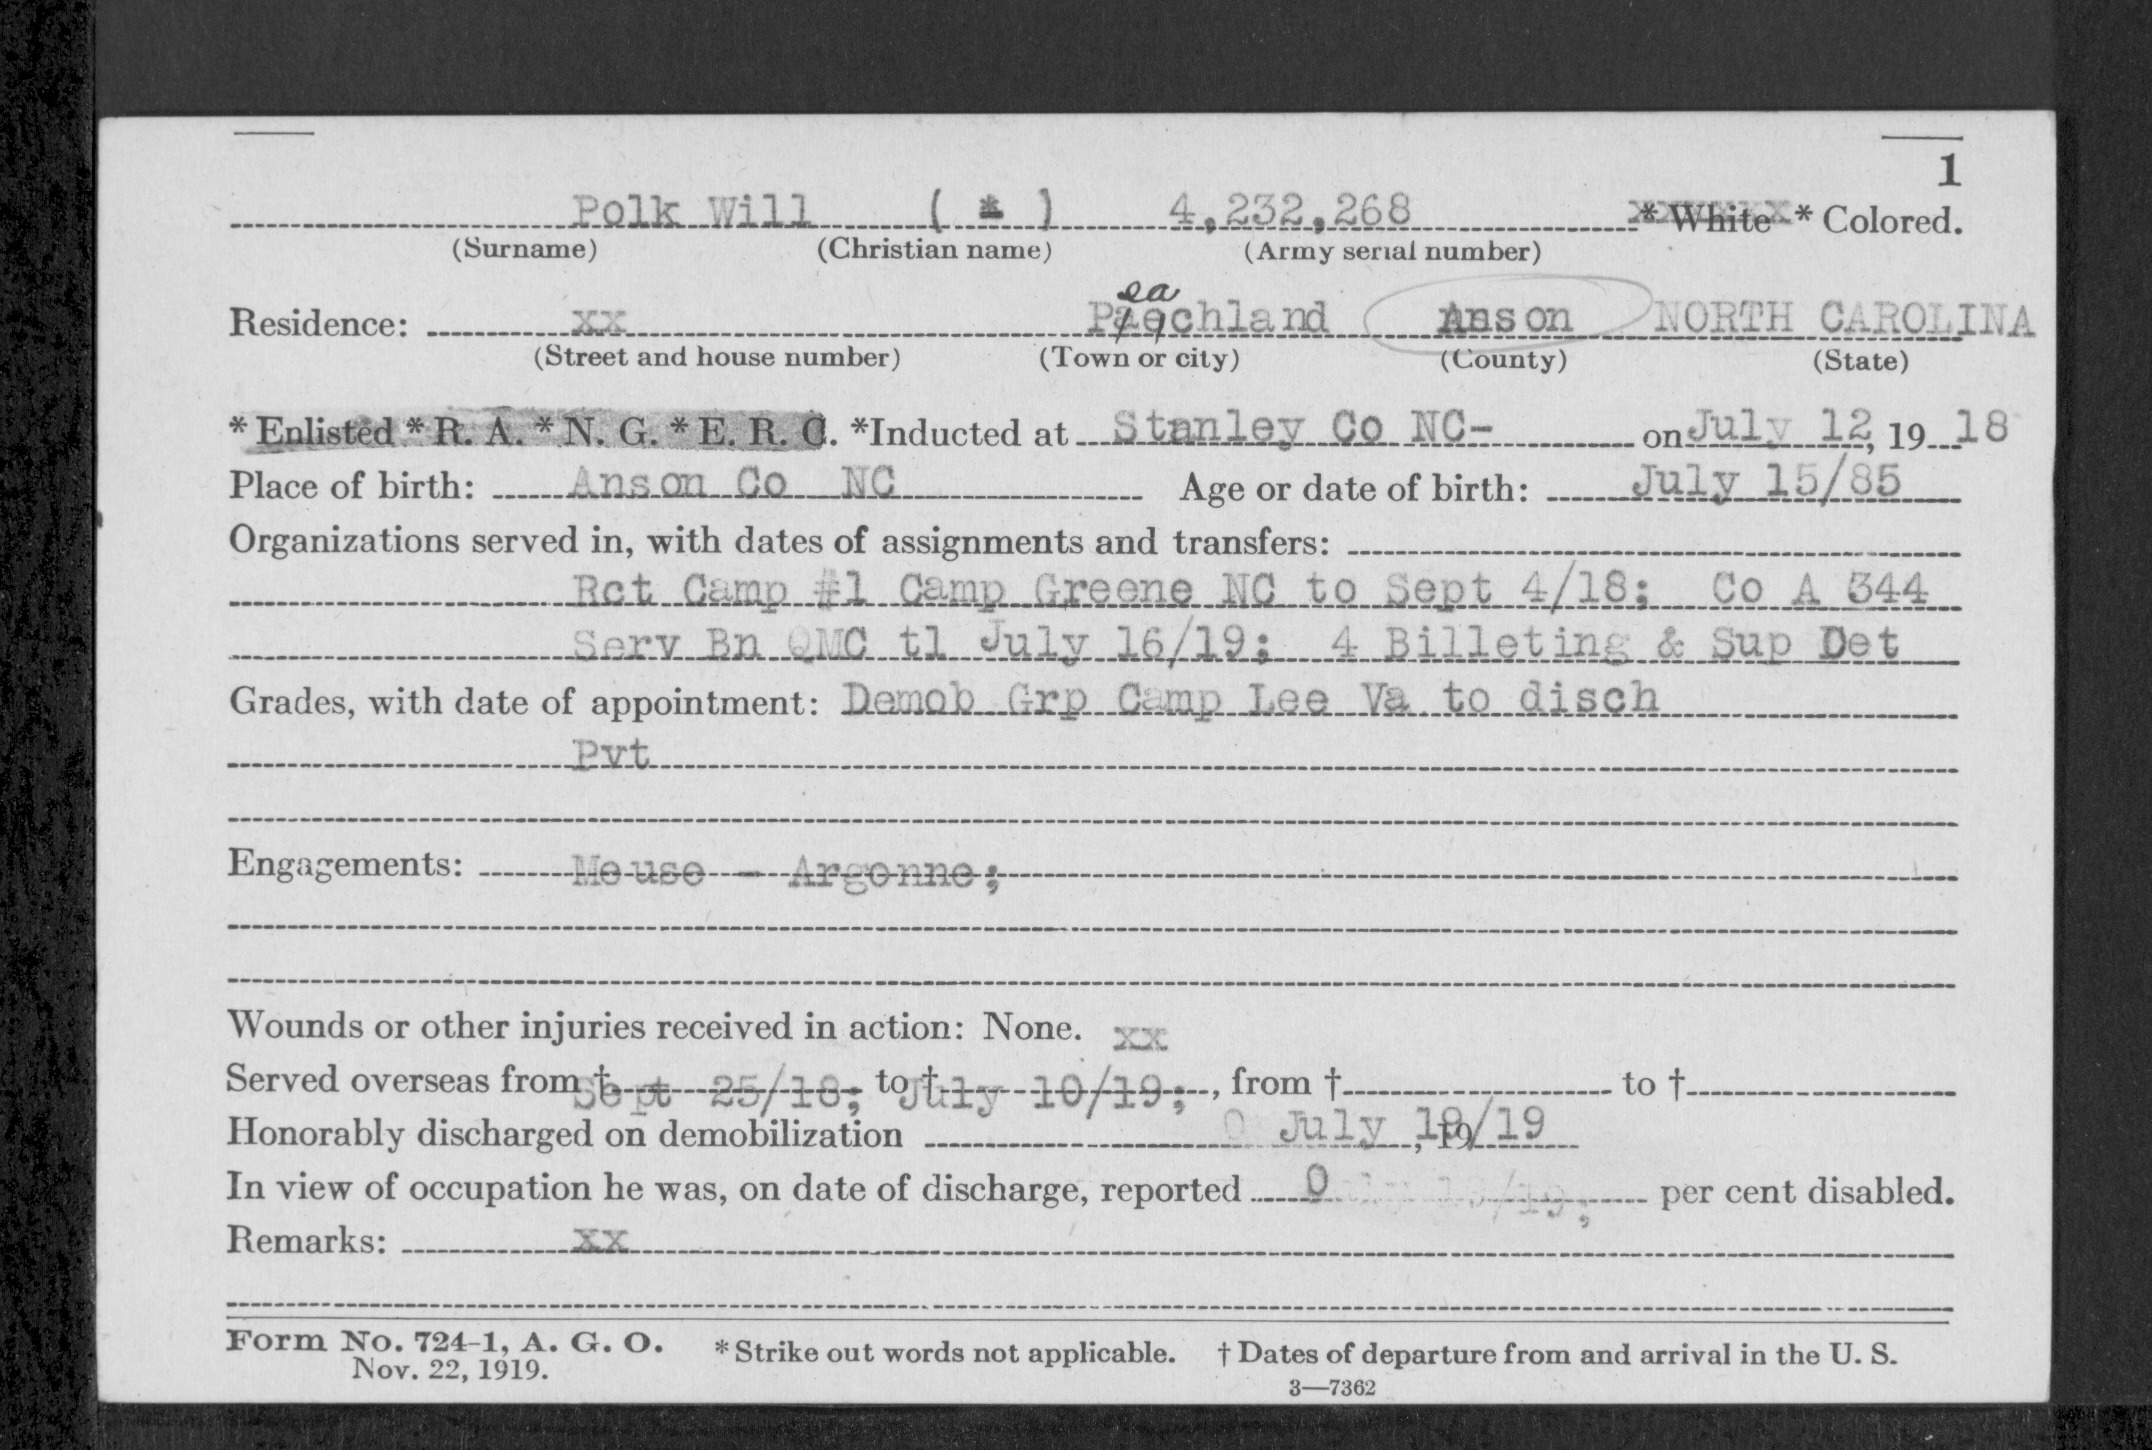 1
Polk Will ( * ) 4,232,268 * White * Colored.
(Surname) (Christian name) (Army serial number)
ea
Residence: xx Paechland Anson NORTH CAROLINA
(Street and house number) (Town or city) (County) (State)
* Enlisted * R. A. * N. G. * E. R. C. *Inducted at Stanley Co NC- on July 12, 19 18
Place of birth: Anson Co NC Age or date of birth: July 15/85
Organizations served in, with dates of assignments and transfers:
Rct Camp #1 Camp Greene NC to Sept 4/18; Co A 344
Serv Bn QMC tl July 16/19; 4 Billeting & Sup Det
Grades, with date of appointment: Demob Grp Camp Lee Va to disch
Pvt
Engagements: Meuse - Argonne;
Wounds or other injuries received in action: None. xx
Served overseas from † Sept 25/18; to † July 10/19; , from † to †
Honorably discharged on demobilization July , 19 /19
In view of occupation he was, on date of discharge, reported 0 per cent disabled.
Remarks: xx
Form No. 724-1, A. G. O. * Strike out words not applicable. † Dates of departure from and arrival in the U. S.
Nov. 22, 1919.
3—7362